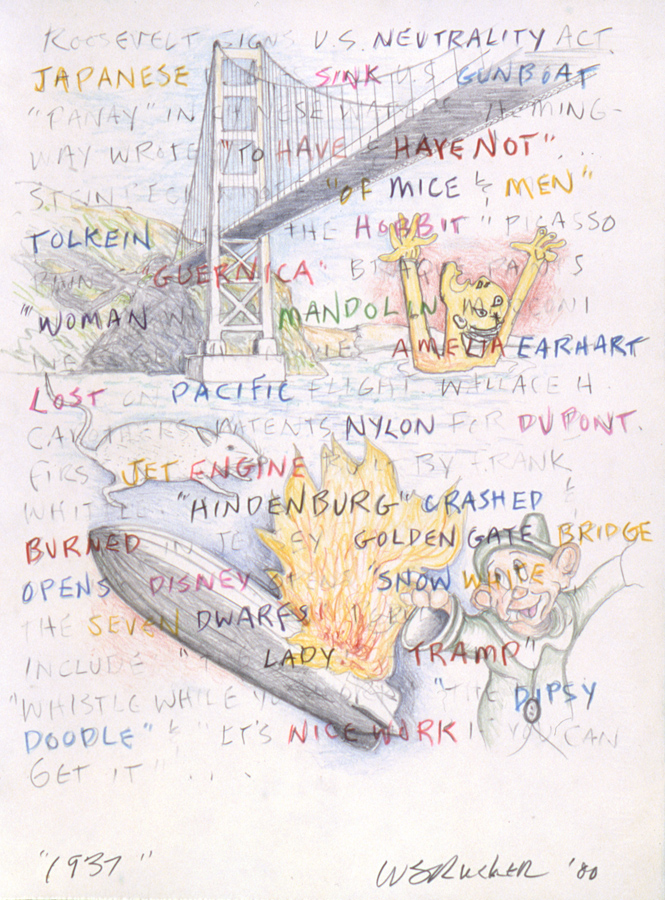 ROOSEVELT SIGNS U.S. NEUTRALITY ACT.
JAPANESE SINK U.S. GUNBOAT
"PANAY" IN CHINESE WATERS. HEMING-
WAY WROTE "TO HAVE & HAVE NOT"...
STEINBECK "OF MICE & MEN"
TOLKEIN THE HOBBIT" PICASSO
"GUERNICA"
"WOMAN MANDOLIN
AMELIA EARHART
LOST ON PACIFIC FLIGHT. WALLACE H.
CAROTHERS PATENTS NYLON FOR DUPONT.
FIRST JET ENGINE BUILT BY FRANK
WHITTLE. "HINDENBURG" CRASHED &
BURNED IN JERSEY GOLDEN GATE BRIDGE
OPENS DISNEY "SNOW WHITE
THE SEVEN DWARFS"
INCLUDE "THE LADY TRAMP"
"WHISTLE WHILE YOU WORK" "THE DIPSY
DOODLE" & "IT'S NICE WORK IF YOU CAN
GET IT"....
"1937" WS RUCKER '80